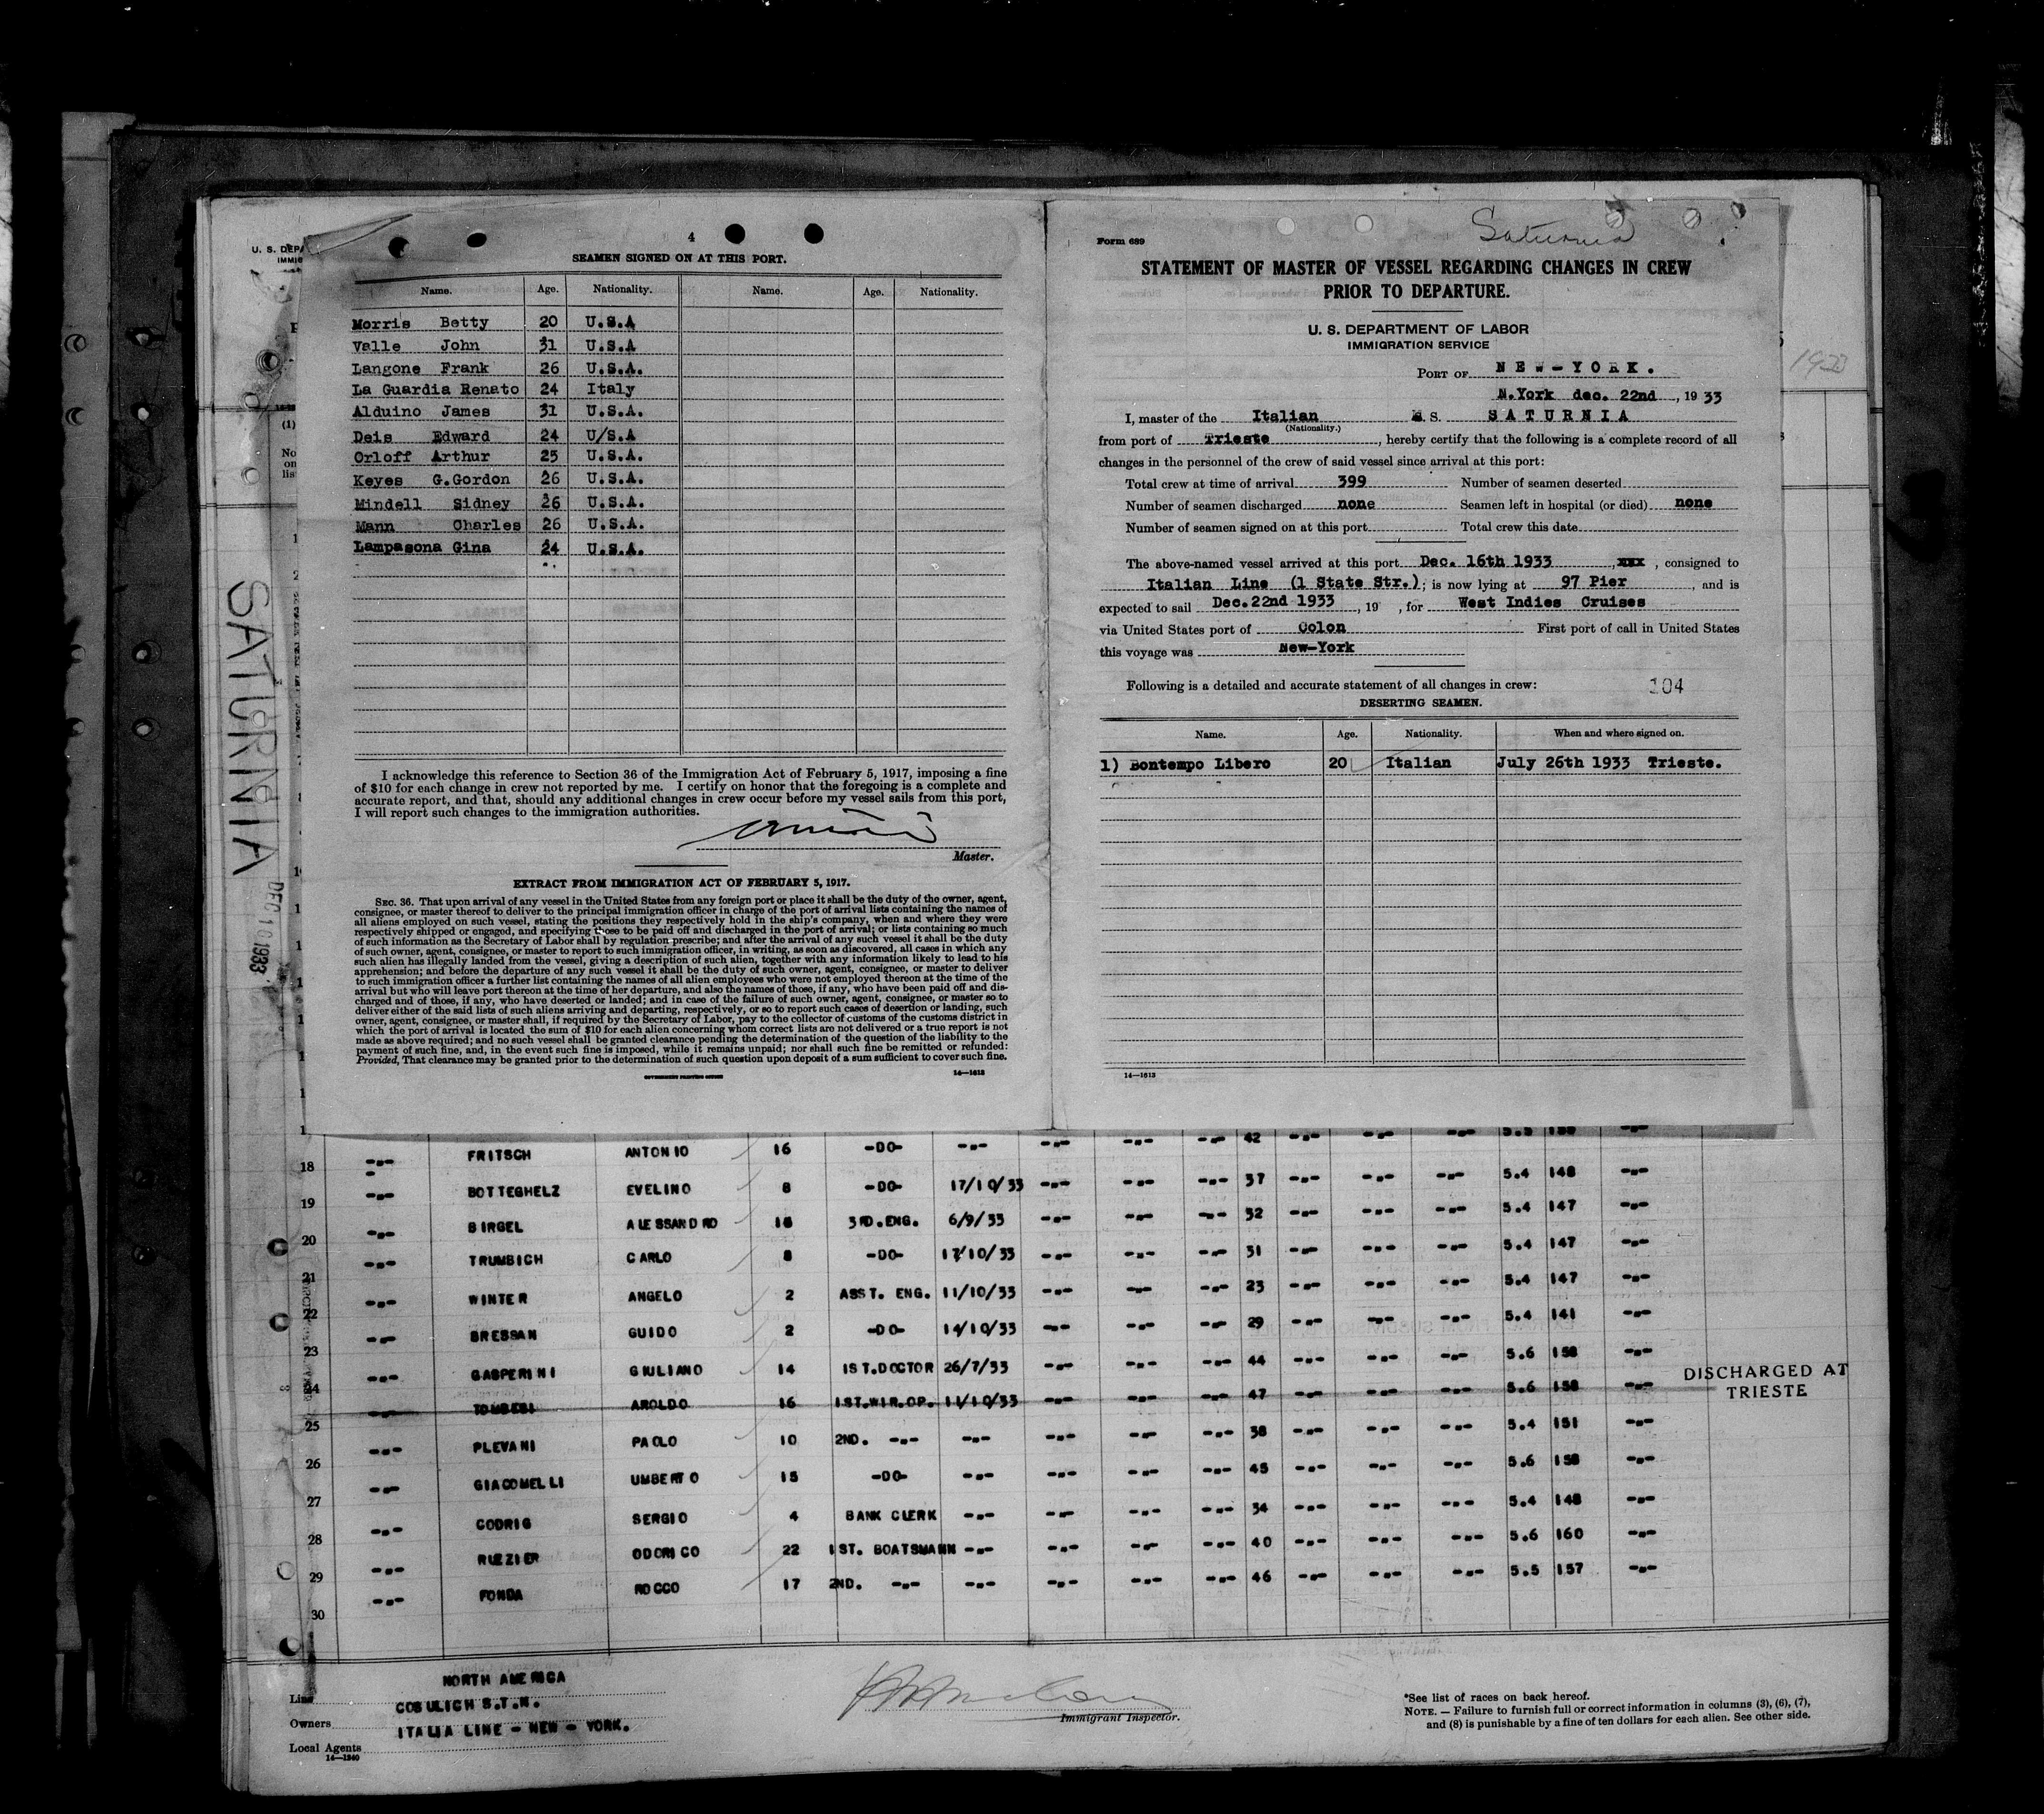 U. S. DEPA
IMMIG
4
SEAMEN SIGNED ON AT THIS PORT.
Name. Age. Nationality. Name. Age. Nationality.
Morris Betty 20 U.S.A
Valle John 31 U.S.A
Langone Frank 26 U.S.A.
La Guardia Renato 24 Italy
Alduino James 31 U.S.A.
Deis Edward 24 U/S.A
Orloff Arthur 25 U.S.A.
Keyes G.Gordon 26 U.S.A.
Mindell Sidney 26 U.S.A.
Mann Charles 26 U.S.A.
Lampasona Gina 24 U.S.A.
I acknowledge this reference to Section 36 of the Immigration Act of February 5, 1917, imposing a fine
of $10 for each change in crew not reported by me. I certify on honor that the foregoing is a complete and
accurate report, and that, should any additional changes in crew occur before my vessel sails from this port,
I will report such changes to the immigration authorities.
Master.
EXTRACT FROM IMMIGRATION ACT OF FEBRUARY 5, 1917.
SEC. 36. That upon arrival of any vessel in the United States from any foreign port or place it shall be the duty of the owner, agent,
consignee, or master thereof to deliver to the principal immigration officer in charge of the port of arrival lists containing the names of
all aliens employed on such vessel, stating the positions they respectively hold in the ship's company, when and where they were
respectively shipped or engaged, and specifying those to be paid off and discharged in the port of arrival; or lists containing so much
of such information as the Secretary of Labor shall by regulation prescribe; and after the arrival of any such vessel it shall be the duty
of such owner, agent, consignee, or master to report to such immigration officer, in writing, as soon as discovered, all cases in which any
such alien has illegally landed from the vessel, giving a description of such alien, together with any information likely to lead to his
apprehension; and before the departure of any such vessel it shall be the duty of such owner, agent, consignee, or master to deliver
to such immigration officer a further list containing the names of all alien employees who were not employed thereon at the time of the
arrival but who will leave port thereon at the time of her departure, and also the names of those, if any, who have been paid off and dis-
charged and of those, if any, who have deserted or landed; and in case of the failure of such owner, agent, consignee, or master so to
deliver either of the said lists of such aliens arriving and departing, respectively, or so to report such cases of desertion or landing, such
owner, agent, consignee, or master shall, if required by the Secretary of Labor, pay to the collector of customs of the customs district in
which the port of arrival is located the sum of $10 for each alien concerning whom correct lists are not delivered or a true report is not
made as above required; and no such vessel shall be granted clearance pending the determination of the question of the liability to the
payment of such fine, and, in the event such fine is imposed, while it remains unpaid; nor shall such fine be remitted or refunded:
Provided, That clearance may be granted prior to the determination of such question upon deposit of a sum sufficient to cover such fine.
GOVERNMENT PRINTING OFFICE 14—1613
Form 689
Saturnia
STATEMENT OF MASTER OF VESSEL REGARDING CHANGES IN CREW
PRIOR TO DEPARTURE.
U. S. DEPARTMENT OF LABOR
IMMIGRATION SERVICE
PORT OF NEW-YORK.
N.York dec. 22nd, 1933
I, master of the Italian S. S. SATURNIA
(Nationality.)
from port of Trieste, hereby certify that the following is a complete record of all
changes in the personnel of the crew of said vessel since arrival at this port:
Total crew at time of arrival 399 Number of seamen deserted
Number of seamen discharged none Seamen left in hospital (or died) none
Number of seamen signed on at this port Total crew this date
The above-named vessel arrived at this port Dec. 16th 1933, xxx, consigned to
Italian Line (1 State Str.); is now lying at 97 Pier, and is
expected to sail Dec.22nd 1933, 19 , for West Indies Cruises
via United States port of Colon First port of call in United States
this voyage was New-York
Following is a detailed and accurate statement of all changes in crew: 104
DESERTING SEAMEN.
Name. Age. Nationality. When and where signed on.
1) Bontempo Libero 20 Italian July 26th 1933 Trieste.
14—1613
1933
SATURNIA
DEC 16 1933
42 -"- -"- -"- 5.5
18 -"- FRITSCH ANTONIO 16 -DO- -"- -"- -"- -"- 37 -"- -"- -"- 5.4 148 -"-
19 -"- BOTTEGHELZ EVELINO 8 -DO- 17/10/33 -"- -"- -"- 32 -"- -"- -"- 5.4 147 -"-
20 -"- BIRGEL ALESSANDRO 18 3RD.ENG. 6/9/33 -"- -"- -"- 31 -"- -"- -"- 5.4 147 -"-
21 -"- TRUMBICH CARLO 8 -DO- 17/10/33 -"- -"- -"- 23 -"- -"- -"- 5.4 147 -"-
22 -"- WINTER ANGELO 2 ASST. ENG. 11/10/33 -"- -"- -"- 29 -"- -"- -"- 5.4 141 -"-
23 -"- BRESSAN GUIDO 2 -DO- 14/10/33 -"- -"- -"- 44 -"- -"- -"- 5.6 158 -"-
24 -"- GASPERINI GIULIANO 14 1ST.DOCTOR 26/7/33 -"- -"- -"- 47 -"- -"- -"- 5.6 158 -"- DISCHARGED AT
TRIESTE
25 -"- TOMBESI AROLDO 16 1ST.WIR.OP. 11/10/33 -"- -"- -"- 38 -"- -"- -"- 5.4 151 -"-
26 -"- PLEVANI PAOLO 10 2ND. -"- -"- -"- -"- -"- 45 -"- -"- -"- 5.6 158 -"-
27 -"- GIACOMELLI UMBERTO 15 -DO- -"- -"- -"- -"- 34 -"- -"- -"- 5.4 148 -"-
28 -"- CODRIG SERGIO 4 BANK CLERK -"- -"- -"- -"- 40 -"- -"- -"- 5.6 160 -"-
29 -"- RUZZIER ODORICO 22 1ST. BOATSMANN -"- -"- -"- -"- 46 -"- -"- -"- 5.5 157 -"-
30 -"- FONDA ROCCO 17 2ND. -"- -"-
Line NORTH AMERICA
Owners COSULICH S.T.N.
Local Agents ITALIA LINE - NEW - YORK.
14—1240
Immigrant Inspector.
*See list of races on back hereof.
NOTE. — Failure to furnish full or correct information in columns (3), (6), (7),
and (8) is punishable by a fine of ten dollars for each alien. See other side.